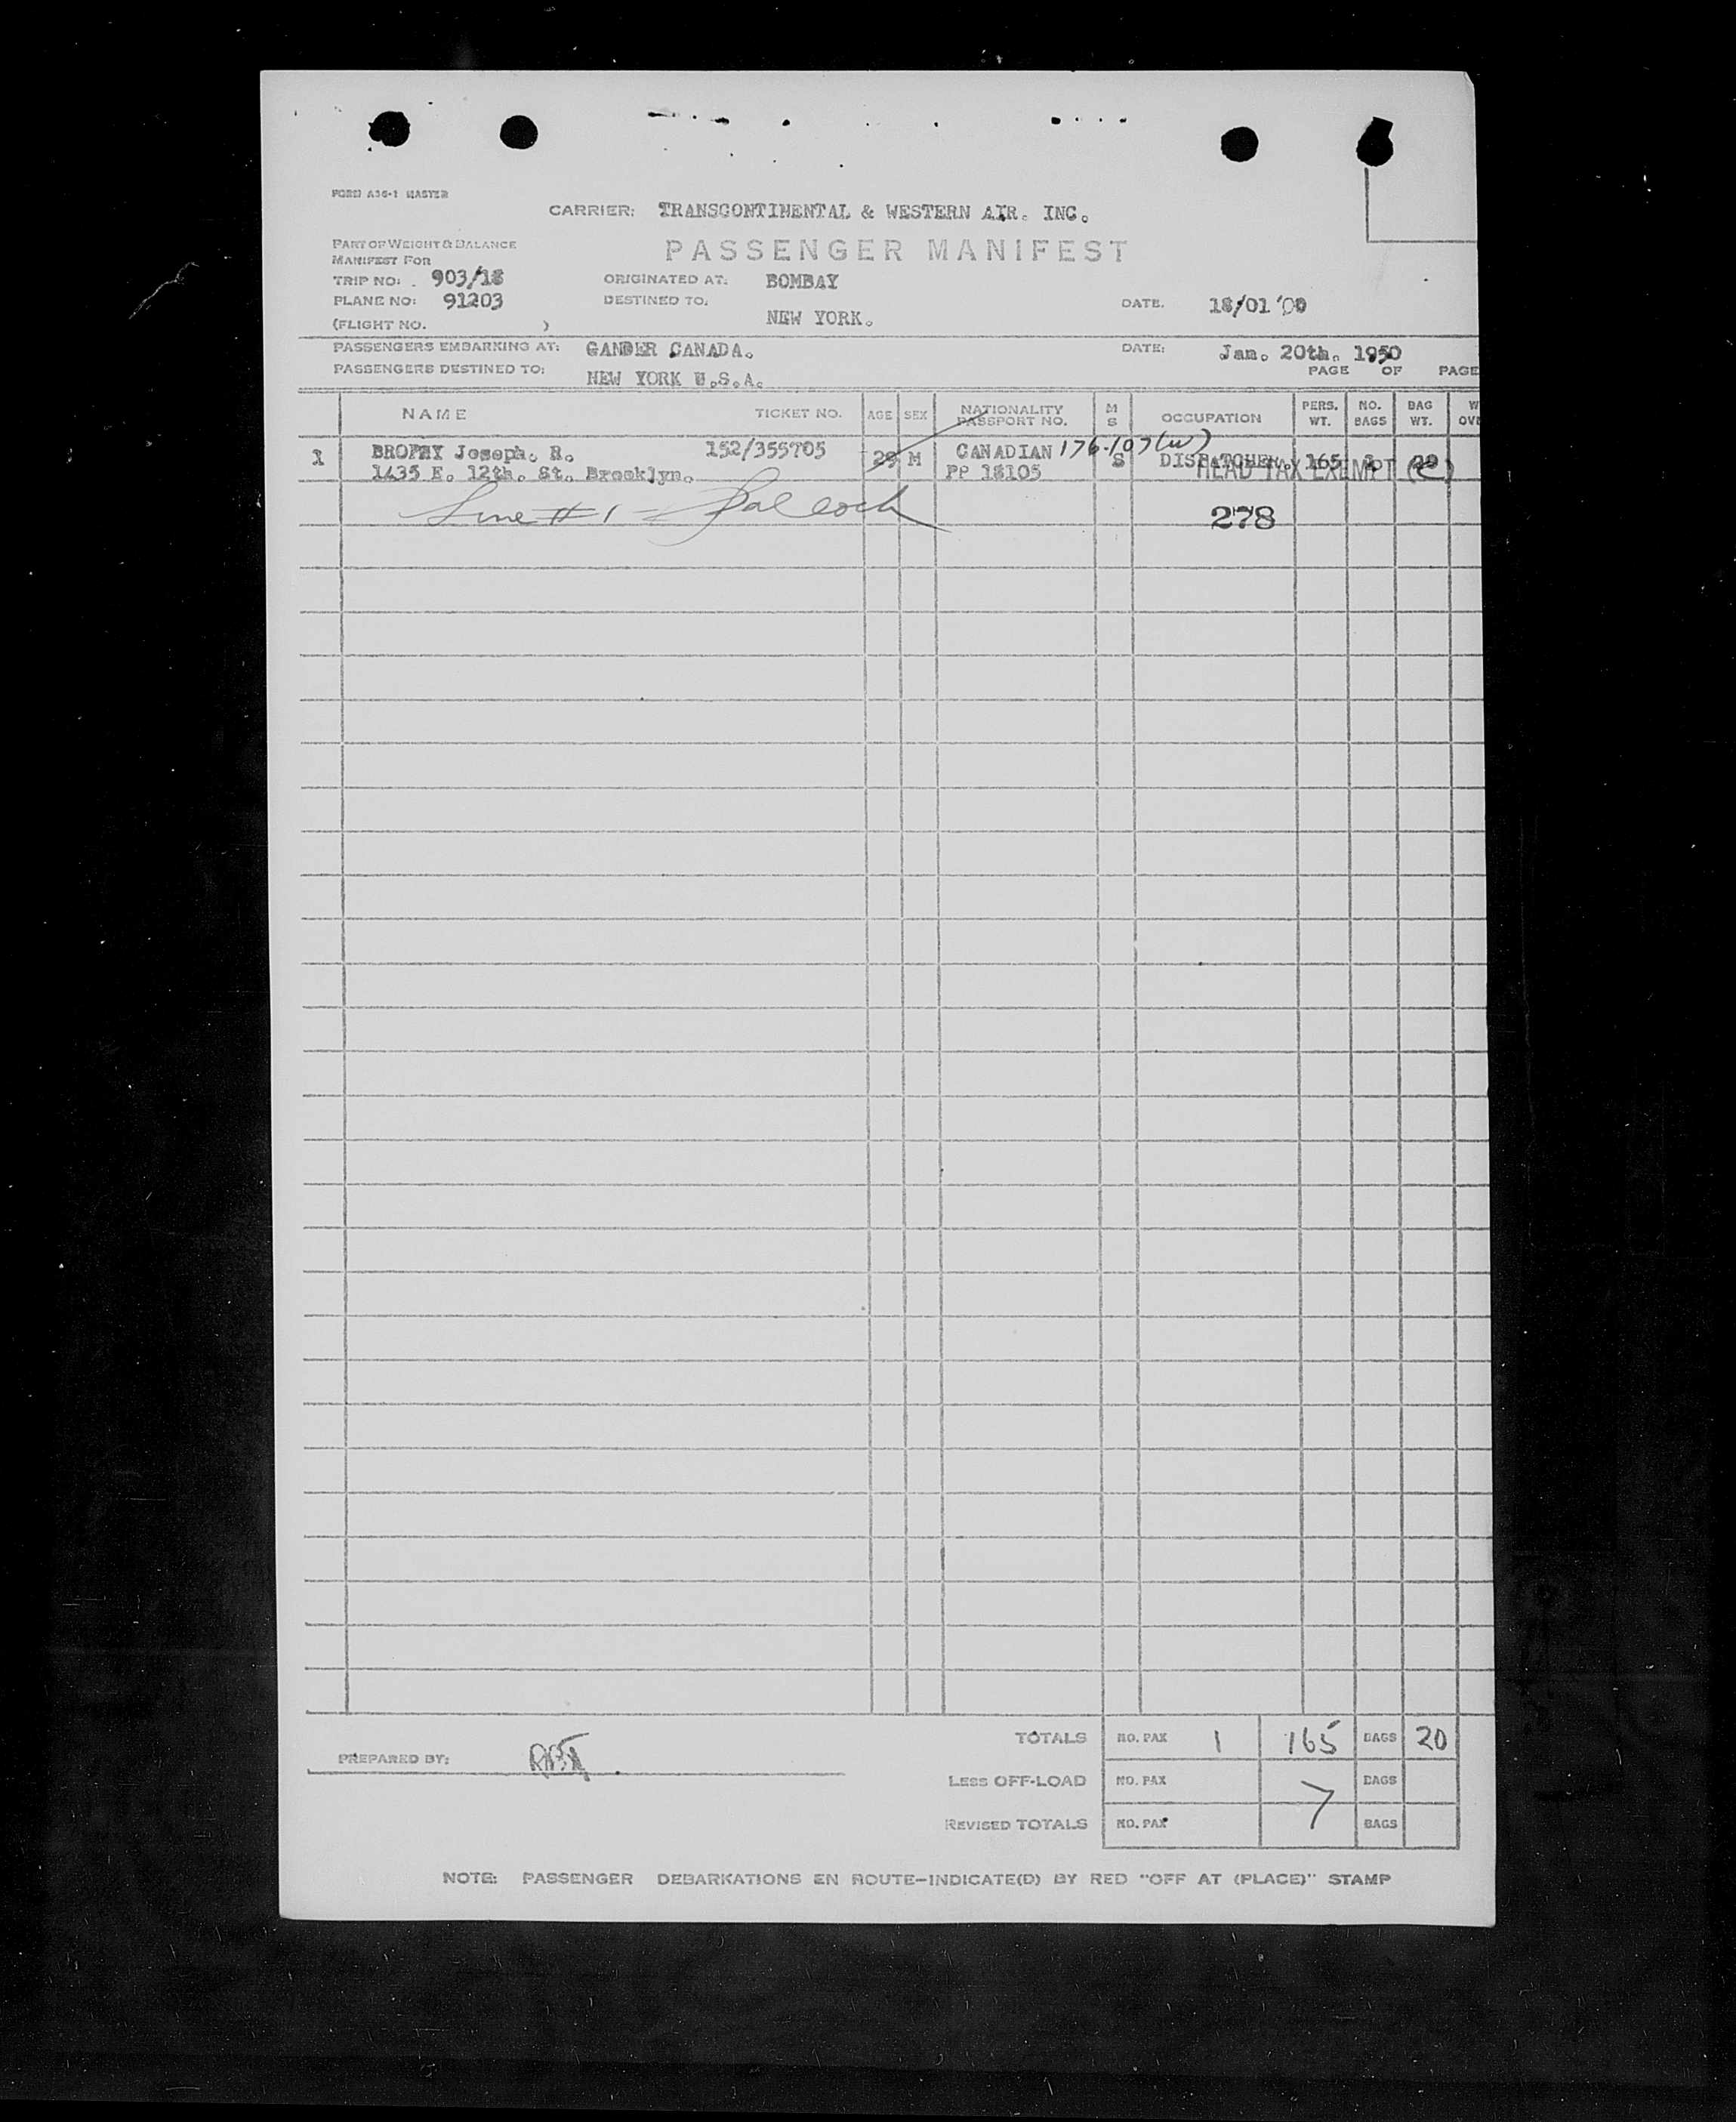 FORM A36-1 MASTER
CARRIER: TRANSCONTINENTAL & WESTERN AIR. INC.
PART OF WEIGHT & BALANCE
MANIFEST FOR
PASSENGER MANIFEST
TRIP NO: 903/18 ORIGINATED AT: BOMBAY
PLANE NO: 91203 DESTINED TO. NEW YORK. DATE. 18/01
(FLIGHT NO. )
PASSENGERS EMBARKING AT: GANDER CANADA. DATE: Jan. 20th. 1950
PASSENGERS DESTINED TO: NEW YORK U.S.A. PAGE OF PAGE
NAME TICKET NO. AGE SEX NATIONALITY PASSPORT NO. M S OCCUPATION PERS. WT. NO. BAGS BAG WT. W OV
1 BROPHY Joseph. R. 152/355705 29 M CANADIAN 176-107(w) S DISPATCHER. 165 20
1435 E. 12th. St. Brooklyn. PP 18105 HEAD TAX EXEMPT (C)
Line #1 - 278
TOTALS NO. PAX 1 165 BAGS 20
PREPARED BY:
LESS OFF-LOAD NO. PAX BAGS
REVISED TOTALS NO. PAX BAGS
NOTE: PASSENGER DEBARKATIONS EN ROUTE-INDICATE(D) BY RED "OFF AT (PLACE)" STAMP